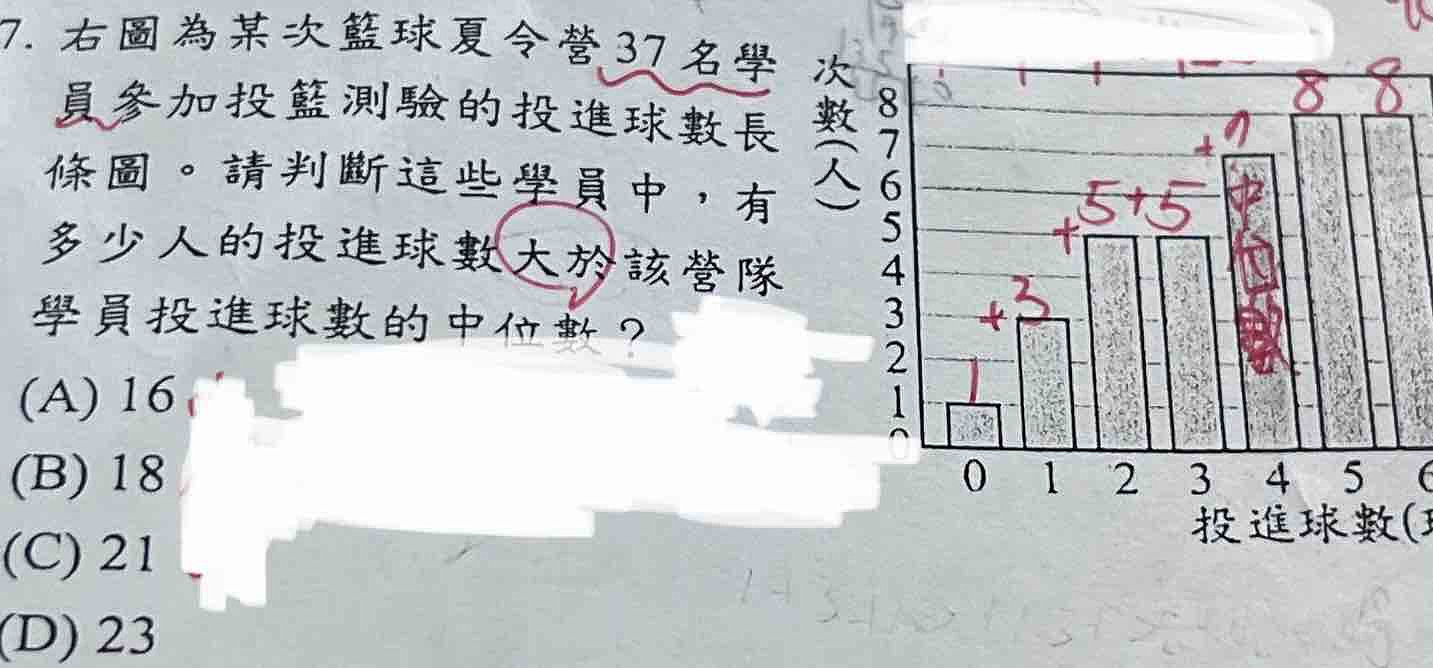 7. 右圖為某次籃球夏令營37名學
員參加投籃測驗的投進球數長
條圖。請判斷這些學員中，有
多少人的投進球數大於該營隊
學員投進球數的中位數？
(A) 16
(B) 18
(C) 21
(D) 23
次數(人)
8
7
6
5
4
3
2
1
0
1
+3
+5+5
+7
8
8
中位數
0 1 2 3 4 5 6
投進球數(